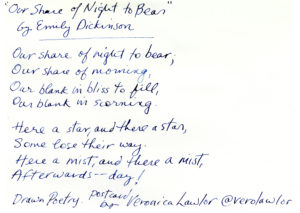 "Our Share of Night to Bear"
by Emily Dickinson
Our share of night to bear,
Our share of morning,
Our blank in bliss to fill,
Our blank in scorning.
Here a star, and there a star,
Some lose their way.
Here a mist, and there a mist,
Afterwards -- day!
Drawn Poetry. postcard by Veronica Lawlor @verolawlor